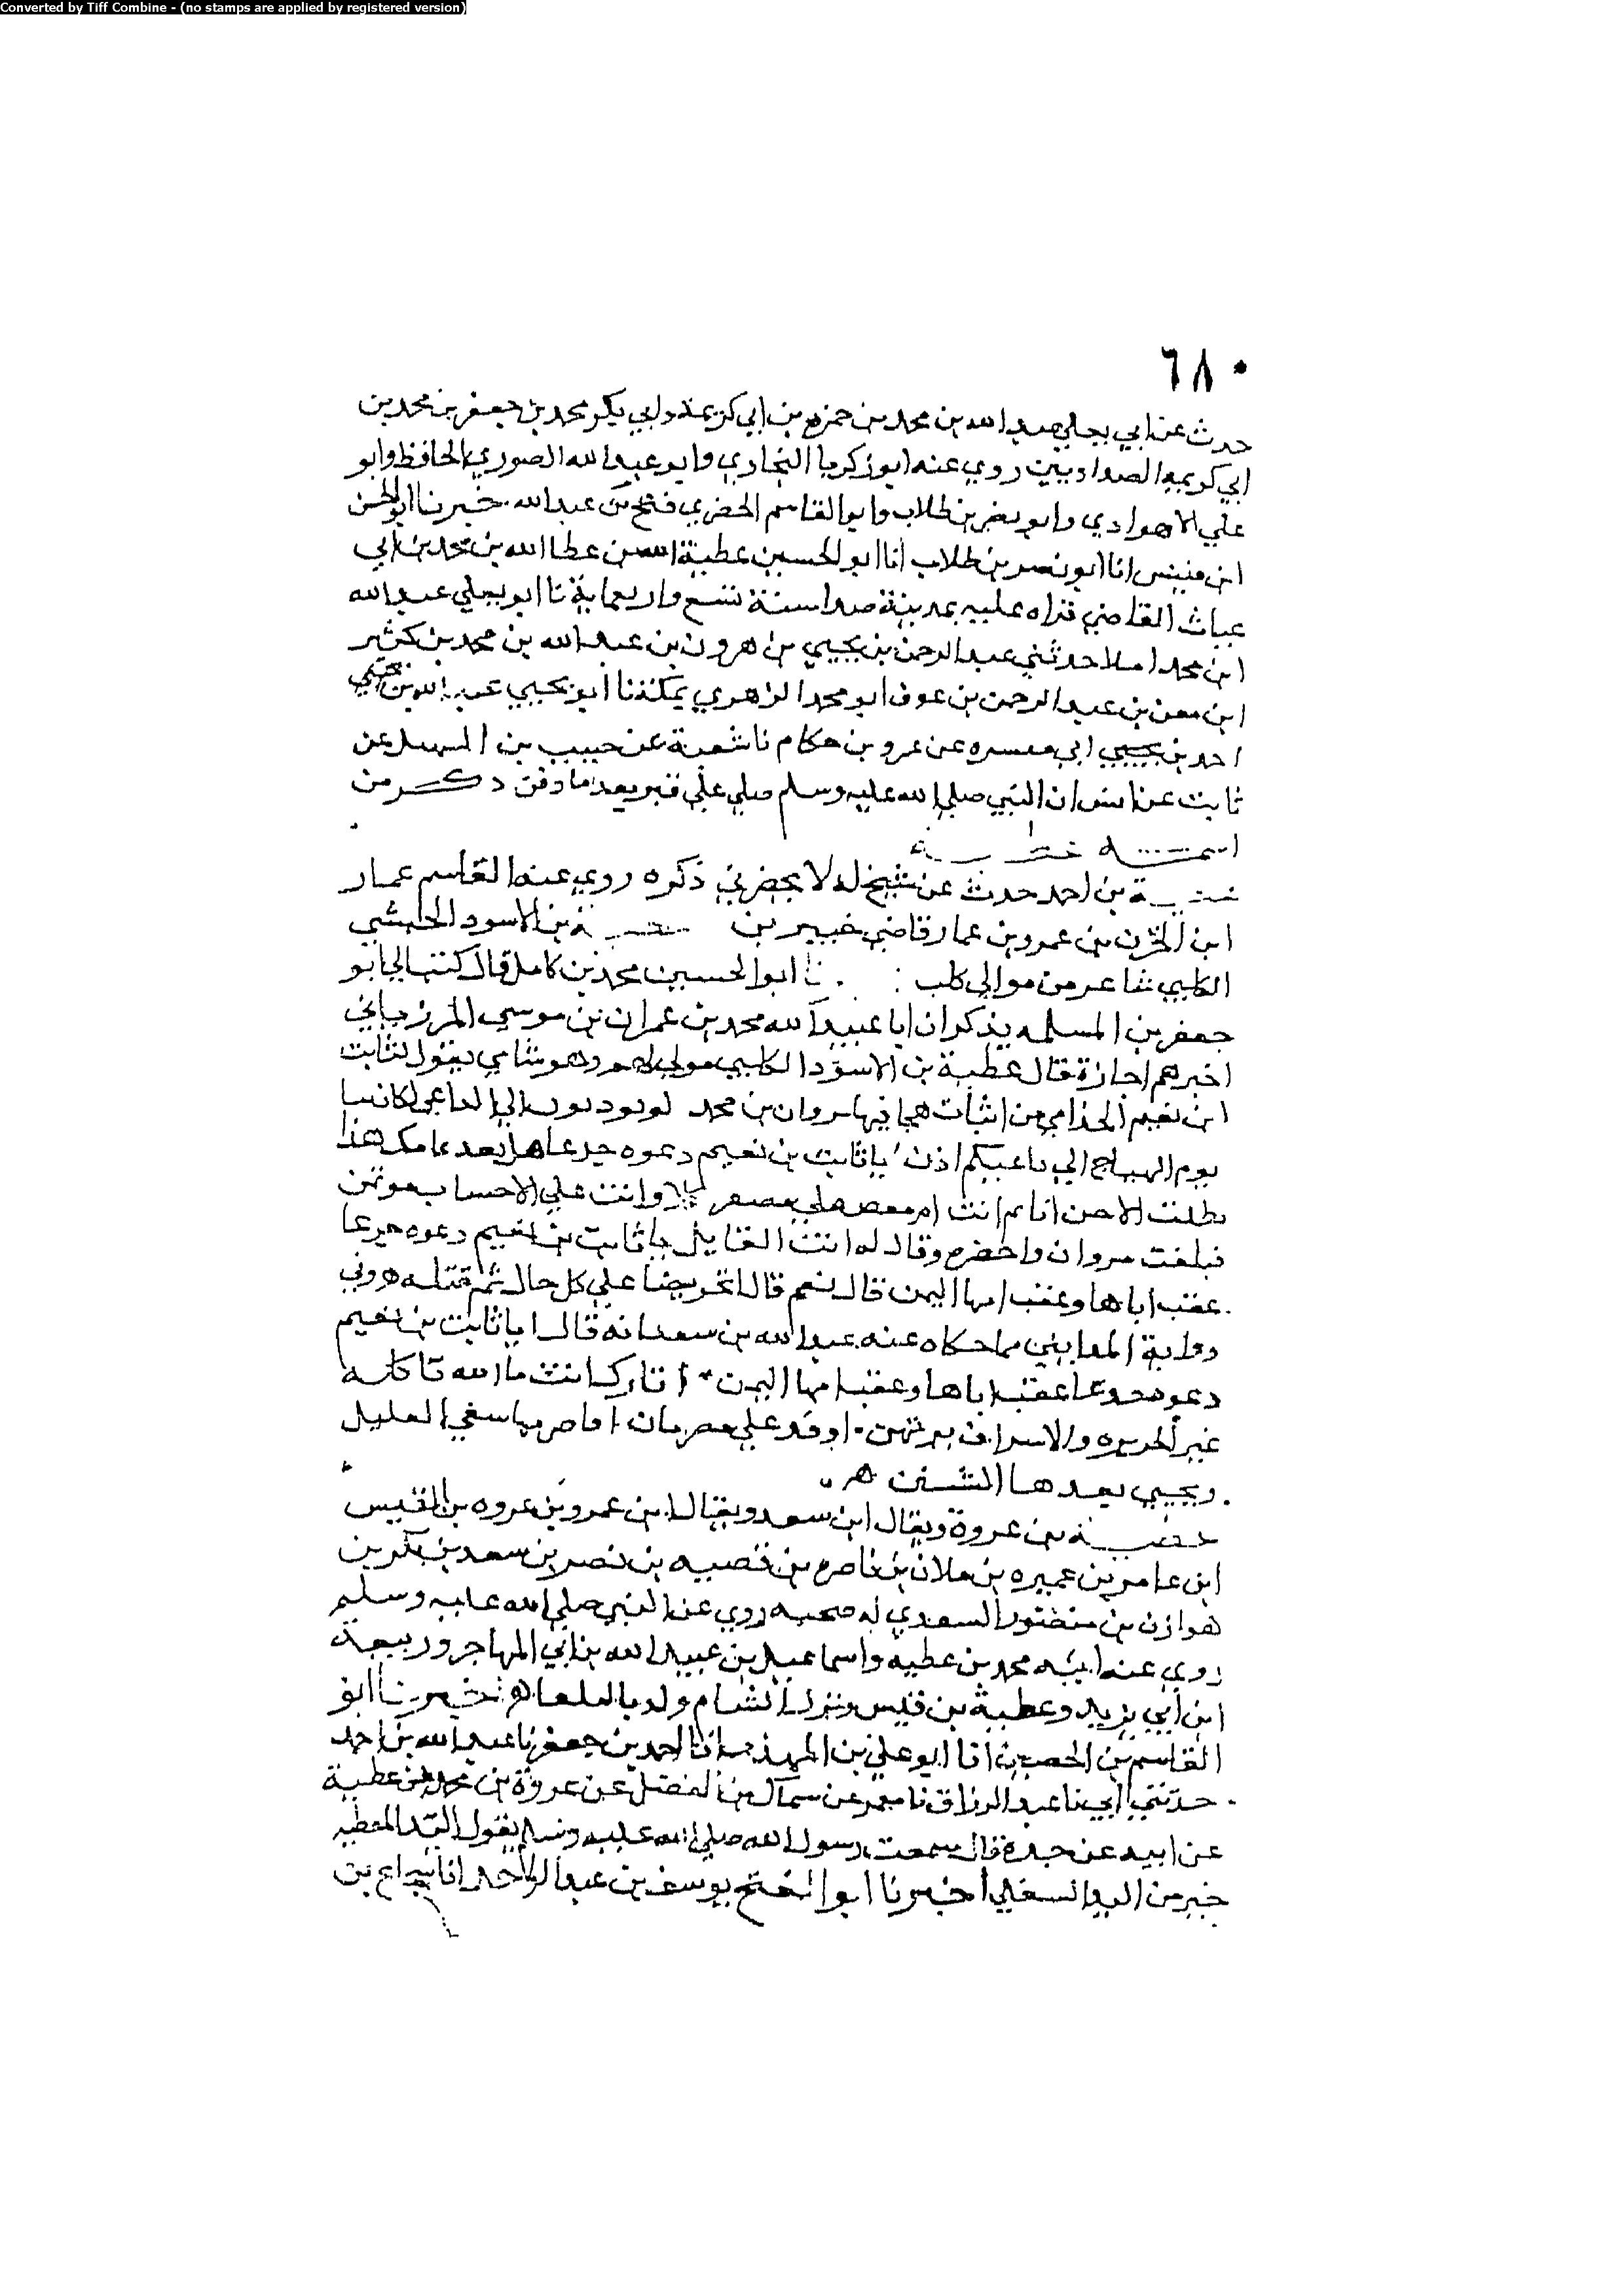 Converted by Tiff Combine - (no stamps are applied by registered version)
٦٨٠
حدث عن ابي يعلي عبد الله بن محمد بن حمزه بن ابي كريمة وابي بكر محمد بن جعفر بن محمد بن
ابي كريمه الصيداويين روي عنه ابو زكريا البخاري وابو عبد الله الصوري الحافظ وابو
علي الاهوازي وابو نصر بن طلاب وابو القاسم الحضري فتح بن عبد الله خبرنا ابو الحسن
ابن قبيس انا ابو نصر بن طلاب انا ابو الحسين عطية الله بن عطا الله بن محمد بن ابي
غياث القاضي قراه عليه بمدينة صيدا سنة تسع واربعماية نا ابو يعلي عبد الله
ابن محمد املا حدثني عبد الرحمن بن يحيي بن هرون بن عبد الله بن محمد بن كثير
ابن معن بن عبد الرحمن بن عوف ابو محمد الزهري بمكة نا ابو يحيي عبد الله بن
احمد بن يحيي ابي ميسره عن عمرو بن حكام نا شعبة عن حبيب بن الشهيد عن
ثابت عن انس ان النبي صلي الله عليه وسلم صلي علي قبر بعد ما دفن ذكر من
اسمه عطية
عطية بن احمد حدث عن شيخ له لا يحضرني ذكره روي عنه القاسم عمار
ابن عمرو بن عمار قاضي خبير بن عطية بن الاسود الحبشي
الكلبي شاعر من موالي كلب نا ابو الحسين محمد بن كامل قال كتب الي ابو
جعفر بن المسلمه يذكر ان ابا عبيد الله محمد بن عمران بن موسي المرزباني
اخبرهم اجازة قال عطية بن الاسود الكلبي مولي لهم وهو شامي يقول لثابت
ابن نعيم الجذامي من ابيات هجا فيها مروان بن محمد الي الداعي لكانسا
يوم الهياج الي داعيكم اذن يا ثابت بن نعيم دعوه
انا ام انت وانت علي الاحساب موتمن
فبلغت مروان واحضره وقال له انت القايل يا ثابت بن نعيم دعوه
عقب اباها وعقب امها اليمن قال نعم قال تحريضا علي كل حال ثم قتله وفي
رواية المدايني مما حكاه عنه عبد الله بن سعد انه قال ايا ثابت بن نعيم
اباها وعقب امها اليمن اتارك انت مال الله تاكله
غير الجزيره والاسراف مرتهن او قد علي
ويجيي بعدها السنن
عطية بن عروة ويقال ابن سعد ويقال ابن عمرو بن عروه بن القيس
ابن عامر بن عميره بن ملان بن ناصره بن قصيه بن نصر بن سعد بن بكر بن
هوازن بن منصور السعدي له صحبه روي عن النبي صلي الله عليه وسلم
روي عنه ابنه محمد بن عطيه واسماعيل بن عبيد الله بن ابي المهاجر وربيعة
ابن ابي يزيد وعطية بن قيس ونزل الشام وولد بالبلقا اخبرنا ابو
القاسم بن الحصين انا ابو علي بن المهذب انا احمد بن جعفر نا عبد الله بن احمد
حدثني ابي نا عبد الرزاق نا معمر عن سماك بن الفضل عن عروة بن محمد بن عطية
عن ابيه عن جده قال سمعت رسول الله صلي الله عليه وسلم يقول اليد المعطيه
خير من اليد السفلي اخبرنا ابو الفتح يوسف بن عبد الواحد انا شجاع بن